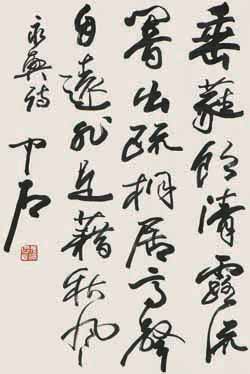 垂緌飲清露流
響出疏桐居高聲
自遠非是藉秋風
永興詩
中石